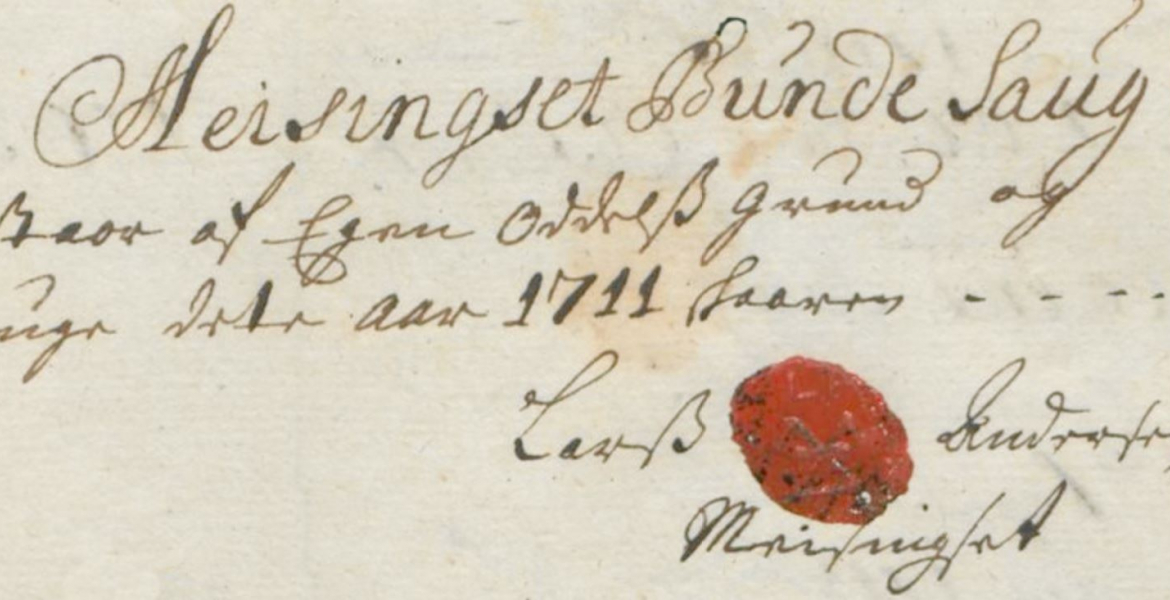 Meisingset Bunde Saug
af Egen Oddelß Grund og
dete aar 1711 Saaren - - - -
Larß Anderse
Meisingset